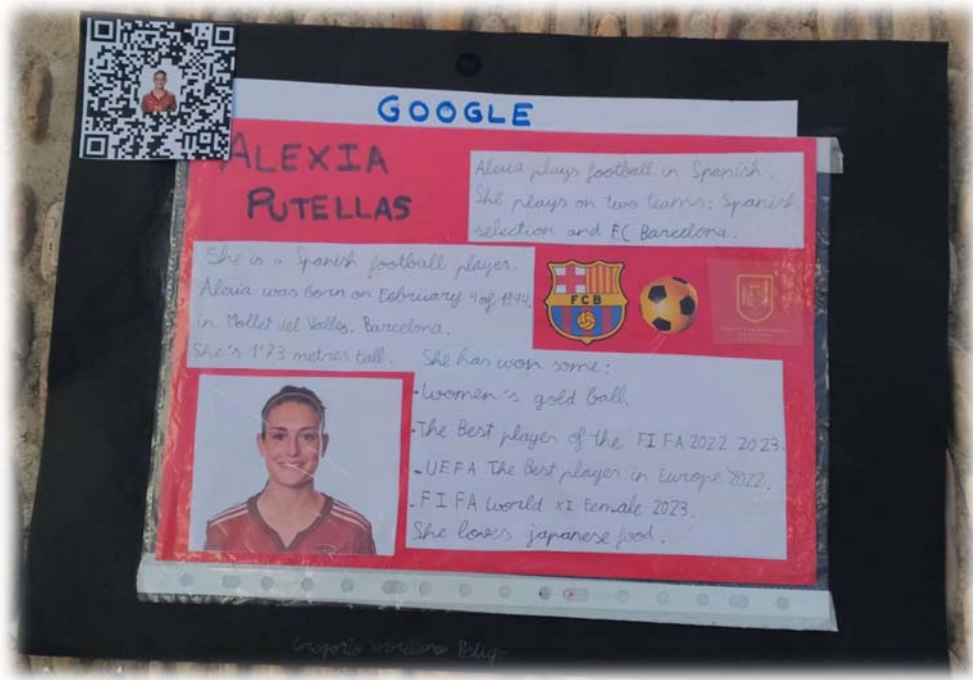 GOOGLE
ALEXIA
PUTELLAS
Alexia plays football in Spanish.
She plays on two teams: Spanish
selection and FC Barcelona.
She is a Spanish football player.
Alexia was born on February 4 of 1994,
in Mollet del Valles, Barcelona.
She's 1'73 metres tall.
FCB
She has won some:
·Women's gold ball.
·The Best player of the FIFA 2022 2023.
-UEFA The Best player in Europe 2022.
·FIFA World XI Female 2023.
She loves japanese food.